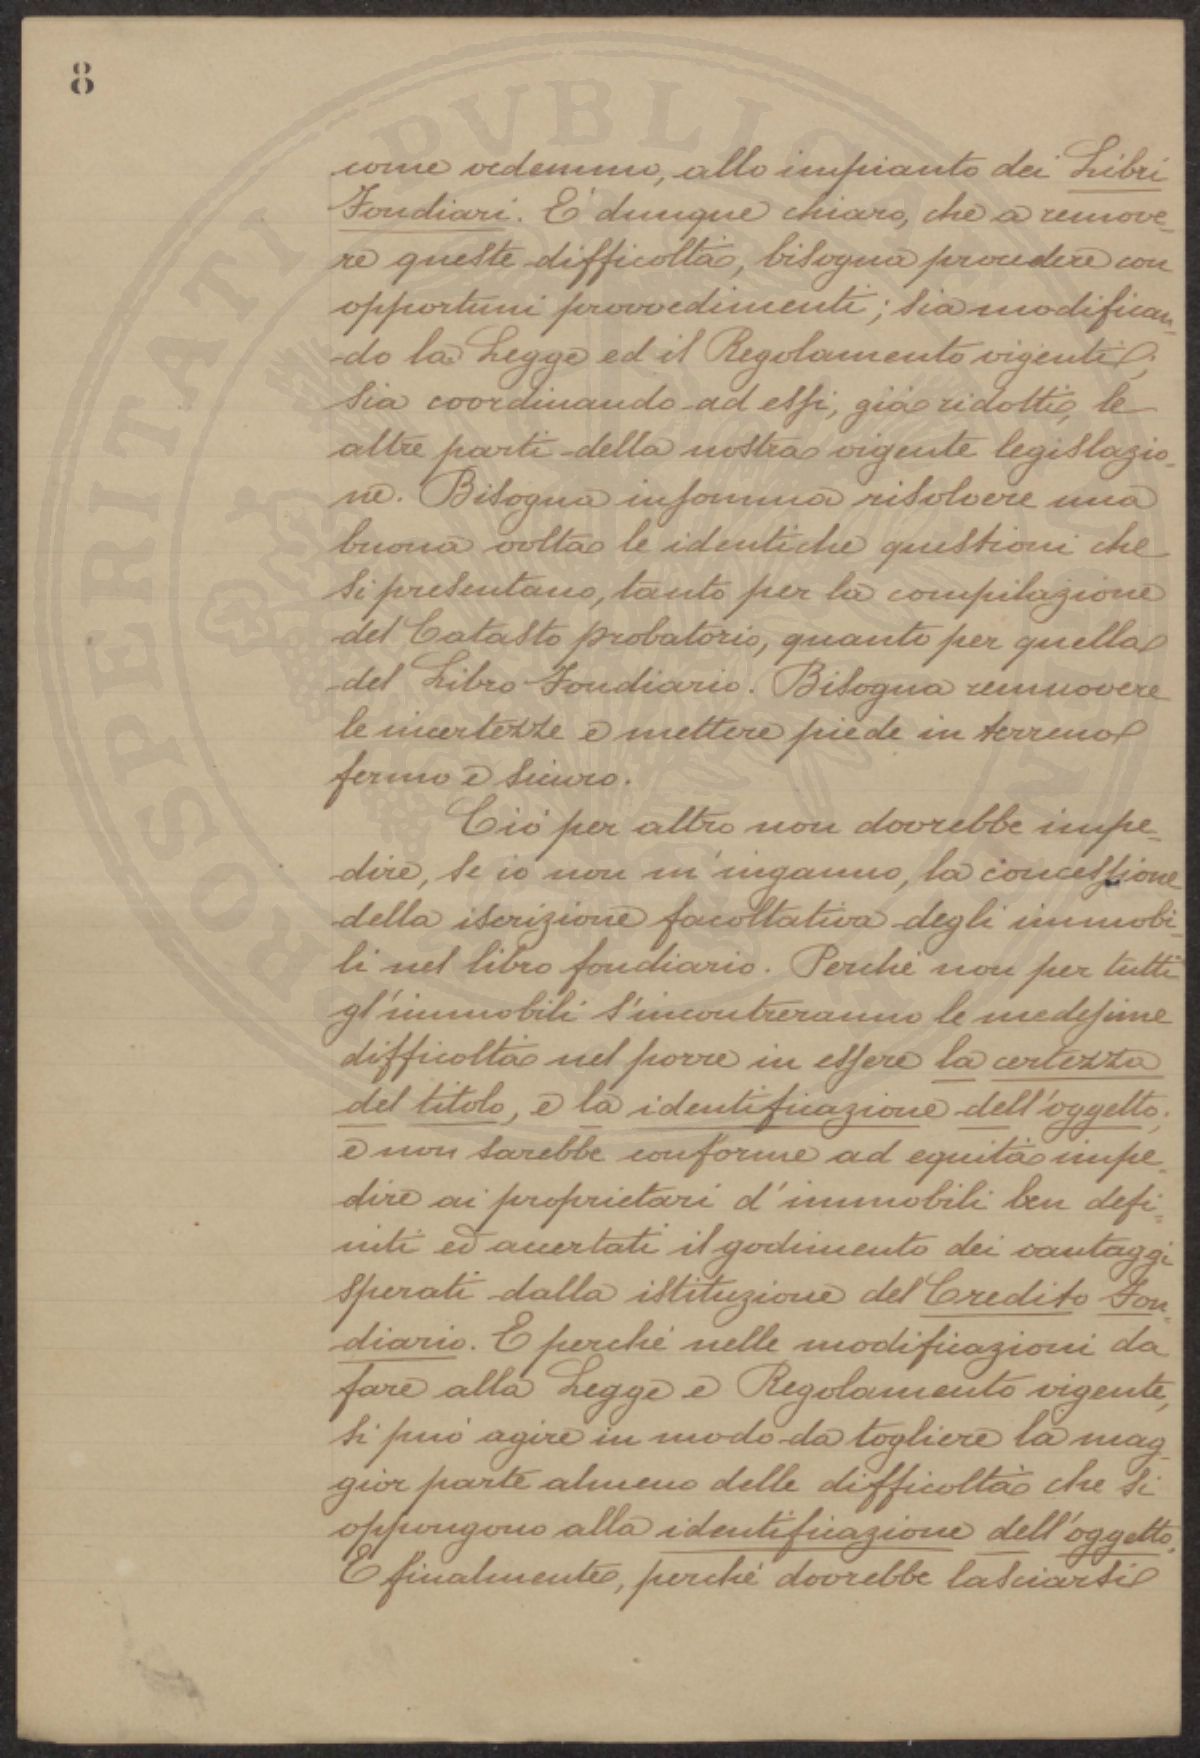 8
come vedemmo, allo impianto dei Libri
Fondiari. E' dunque chiaro, che a remove-
re queste difficoltà, bisogna procedere con
opportuni provvedimenti; sia modifican-
do la Legge ed il Regolamento vigenti,
sia coordinando ad essi, già ridotti, le
altre parti della nostra vigente legislazio-
ne. Bisogna insomma risolvere una
buona volta le identiche questioni che
si presentano, tanto per la compilazione
del Catasto probatorio, quanto per quella
del Libro Fondiario. Bisogna remuovere
le incertezze e mettere piede in terreno
fermo e sicuro.
Ciò per altro non dovrebbe impe-
dire, se io non m'inganno, la concessione
della iscrizione facoltativa degli immobi-
li nel libro fondiario. Perchè non per tutti
gl'immobili s'incontreranno le medesime
difficoltà nel porre in essere la certezza
del titolo, e la identificazione dell'oggetto;
e non sarebbe conforme ad equità impe-
dire ai proprietari d'immobili ben defi-
niti ed accertati il godimento dei vantaggi
sperati dalla istituzione del Credito Fon-
diario. E perchè nelle modificazioni da
fare alla Legge e Regolamento vigente,
si può agire in modo da togliere la mag-
gior parte almeno delle difficoltà che si
oppongono alla identificazione dell'oggetto.
E finalmente, perchè dovrebbe lasciarsi
PROSPERITATI PVBLICAE